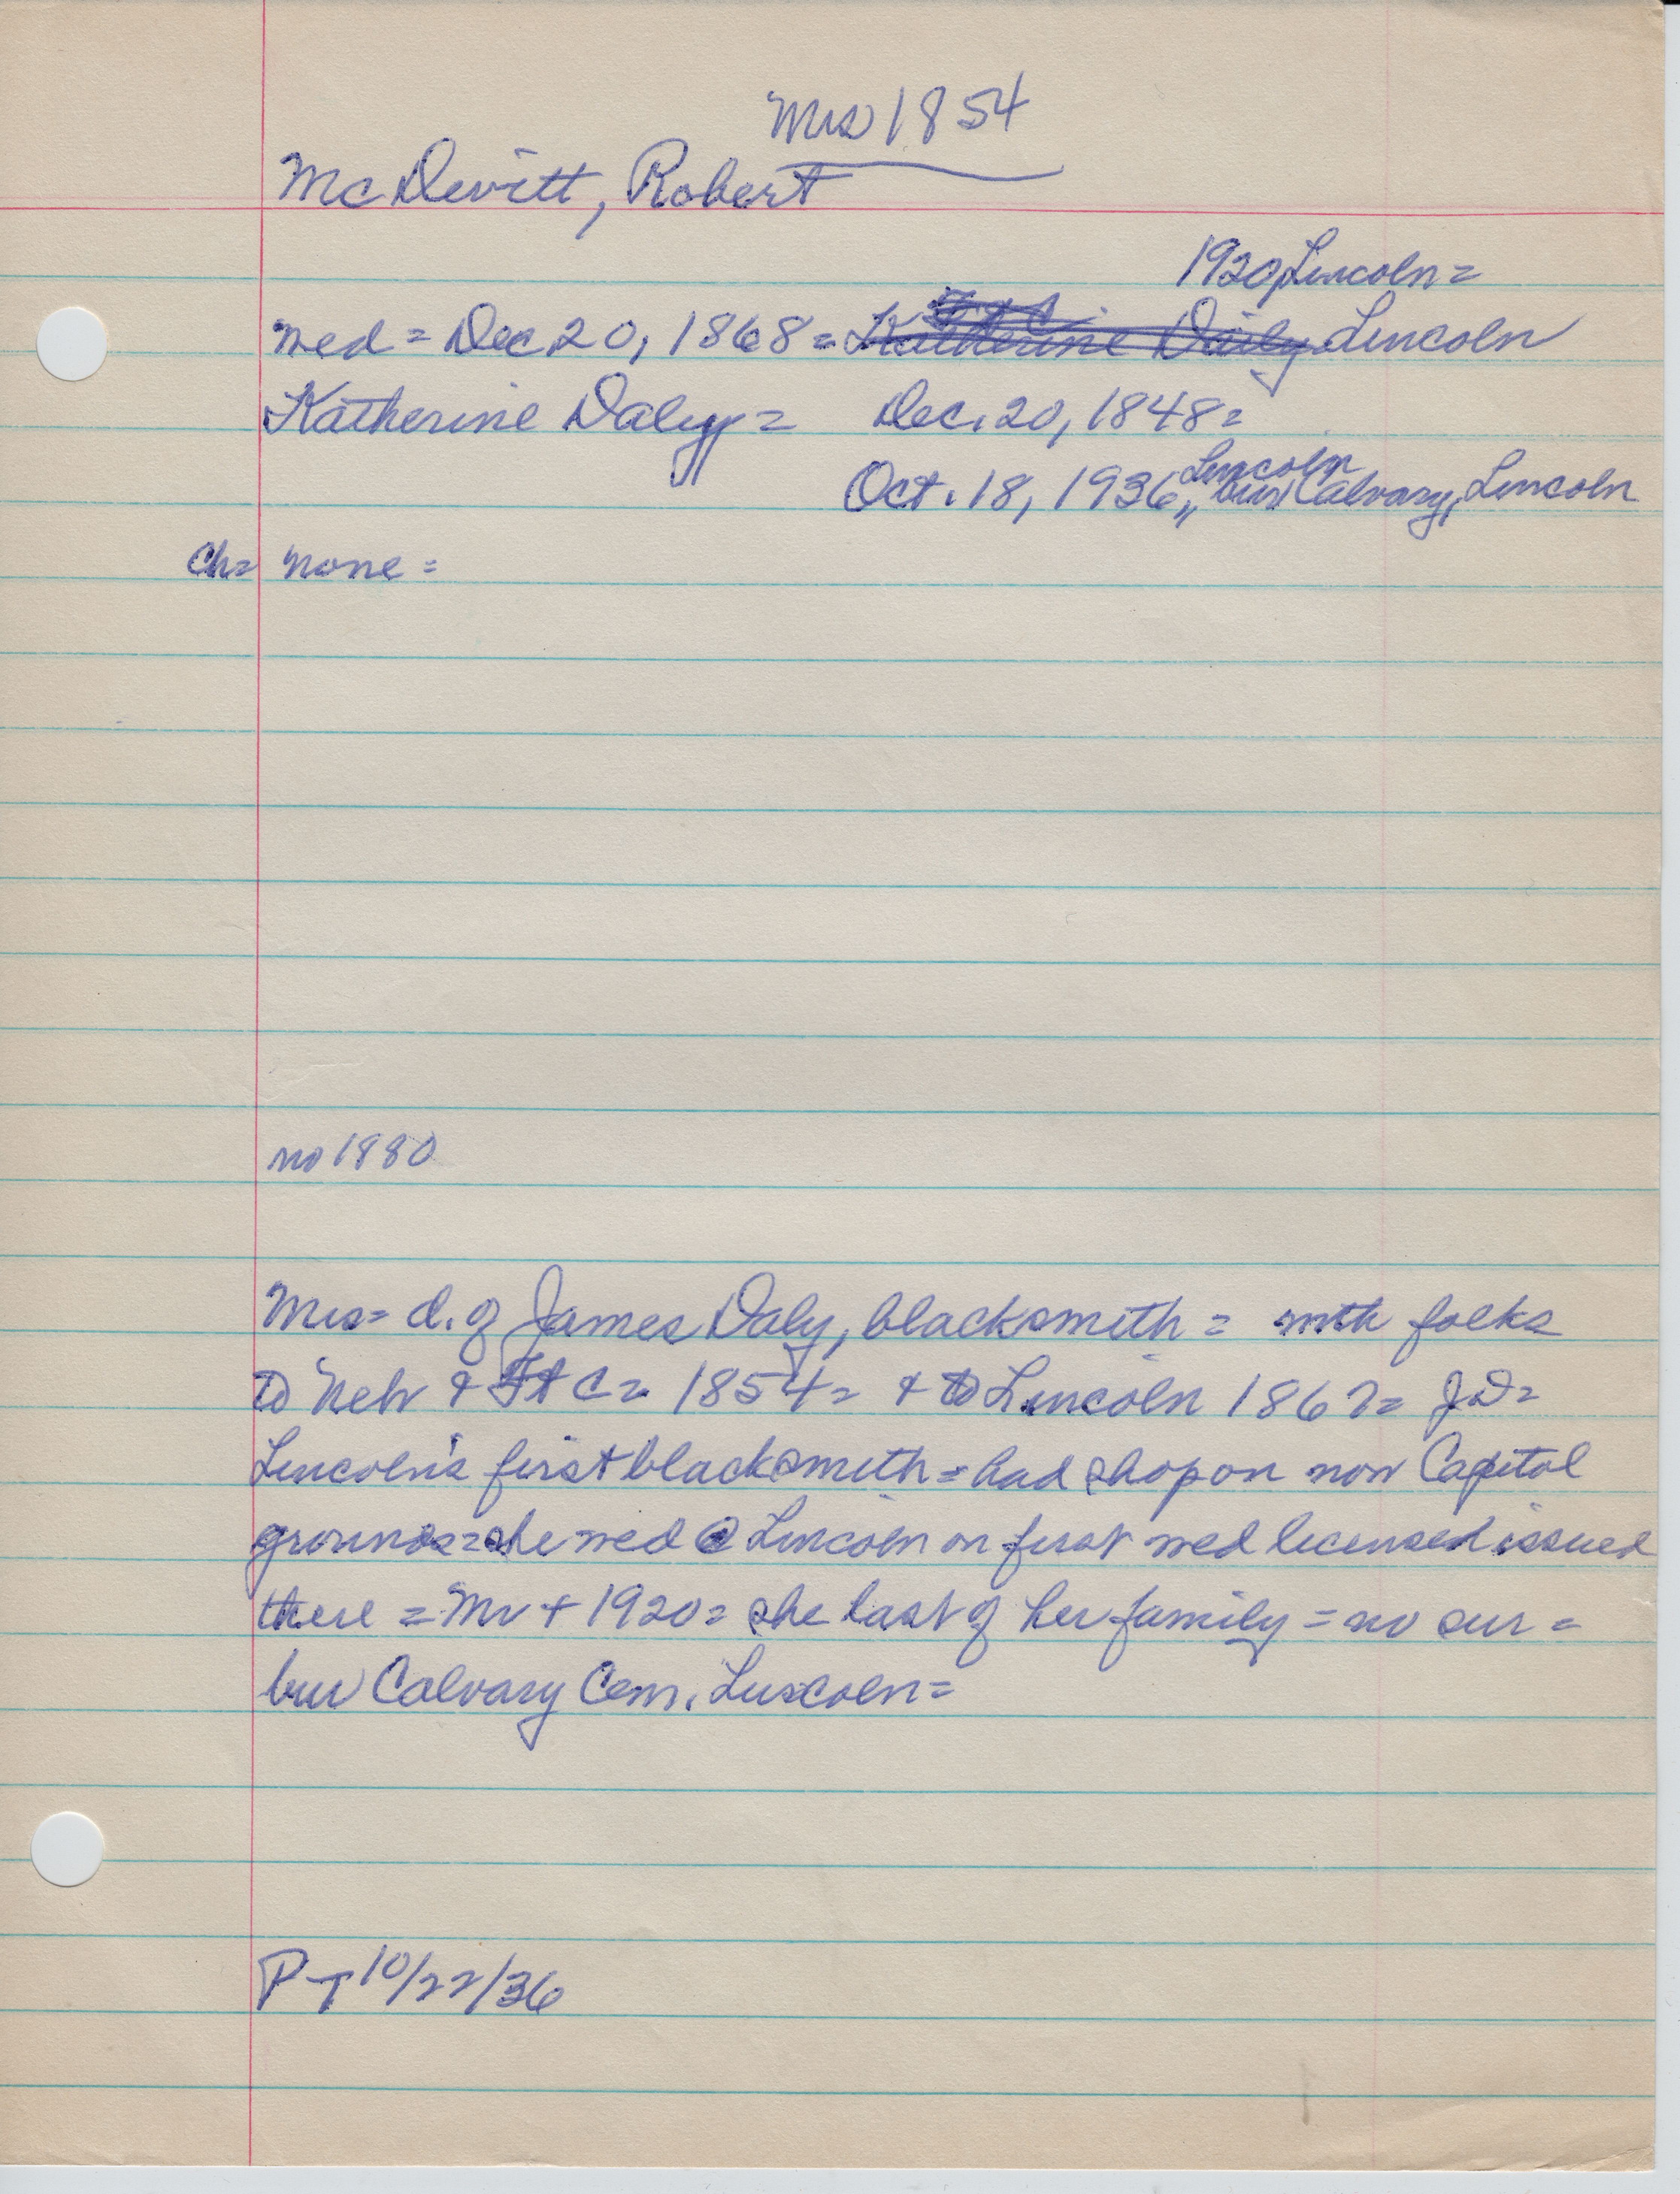 Mrs 1854
McDevitt, Robert
1920, Lincoln =
wed = Dec 20, 1868 = Katherine Daily Lincoln
Katherine Daly = Dec. 20, 1848 =
Oct. 18, 1936, Lincoln bur Calvary, Lincoln
Ch = none =
no 1880
Mrs = d. of James Daly, blacksmith = with folks
to Neb & Ft C = 1854 = & to Lincoln 1867 = JD =
Lincoln's first blacksmith = had shop on now Capitol
grounds = she wed @ Lincoln on first wed licensed issued
there = Mr + 1920 = she last of her family = no sur =
bur Calvary Cem. Lincoln =
P-T 10/22/36